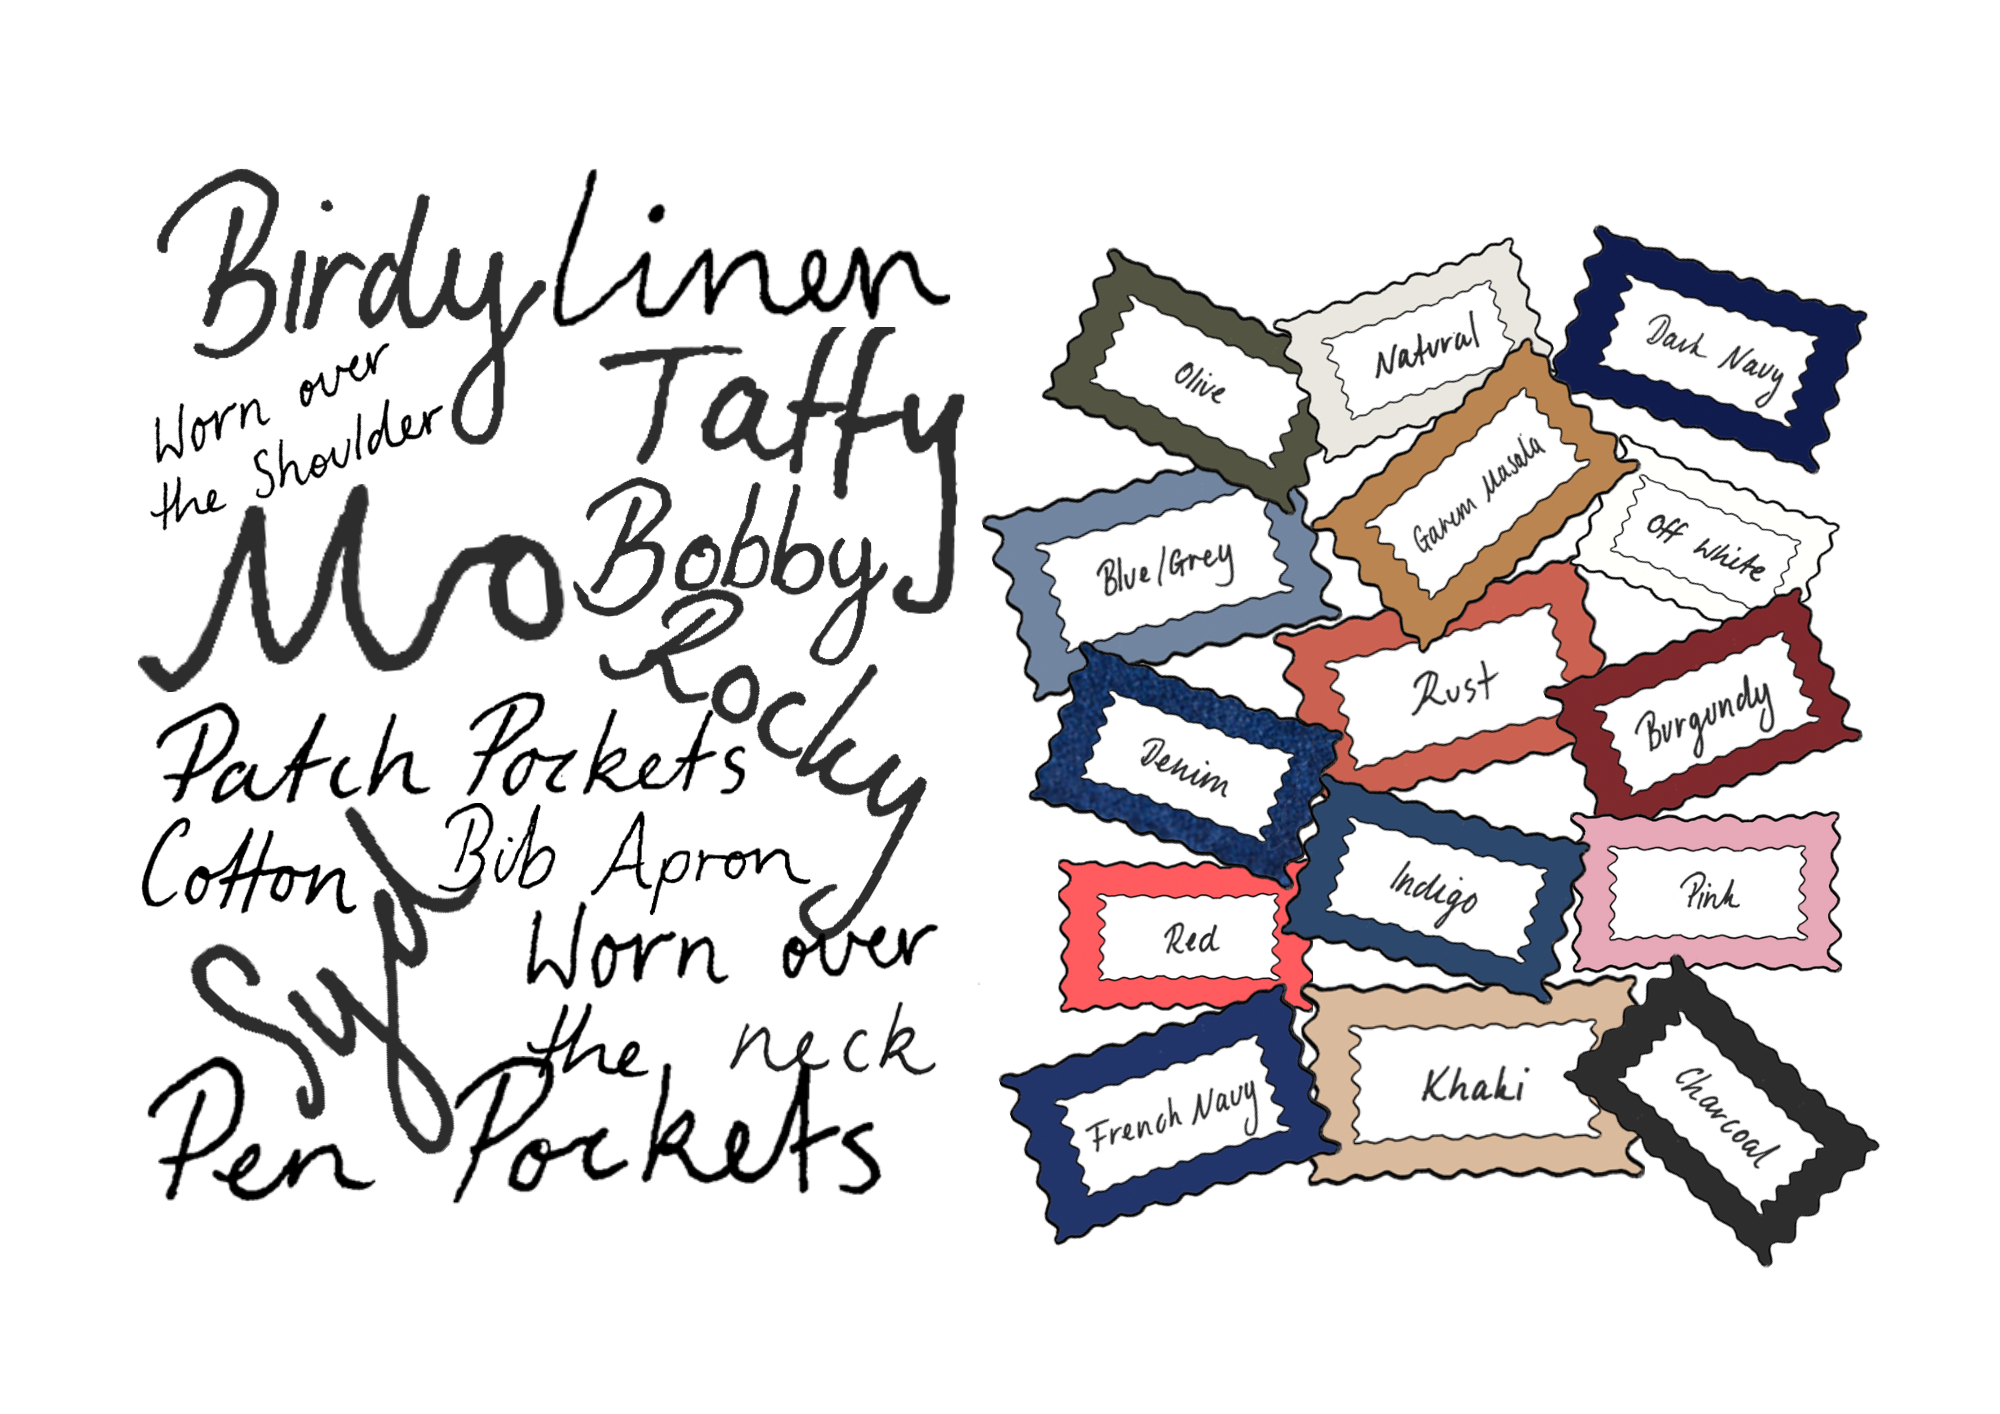 Birdy
Linen
Worn over
the Shoulder
Taffy
Mo
Bobby
Rocky
Patch Pockets
Cotton
Bib Apron
Syd
Worn over
the neck
Pen Pockets
Olive
Natural
Dark Navy
Garum Masala
Blue/Grey
Off White
Rust
Burgundy
Denim
Indigo
Pink
Red
French Navy
Khaki
Charcoal